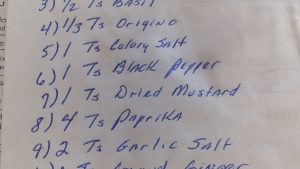 3) 1/2 Ts BASIL
4) 1/3 Ts Origino
5) 1 Ts Celory Salt
6) 1 Ts Black Pepper
7) 1 Ts Dried Mustard
8) 4 Ts Paprika
9) 2 Ts Garlic Salt
Ginger